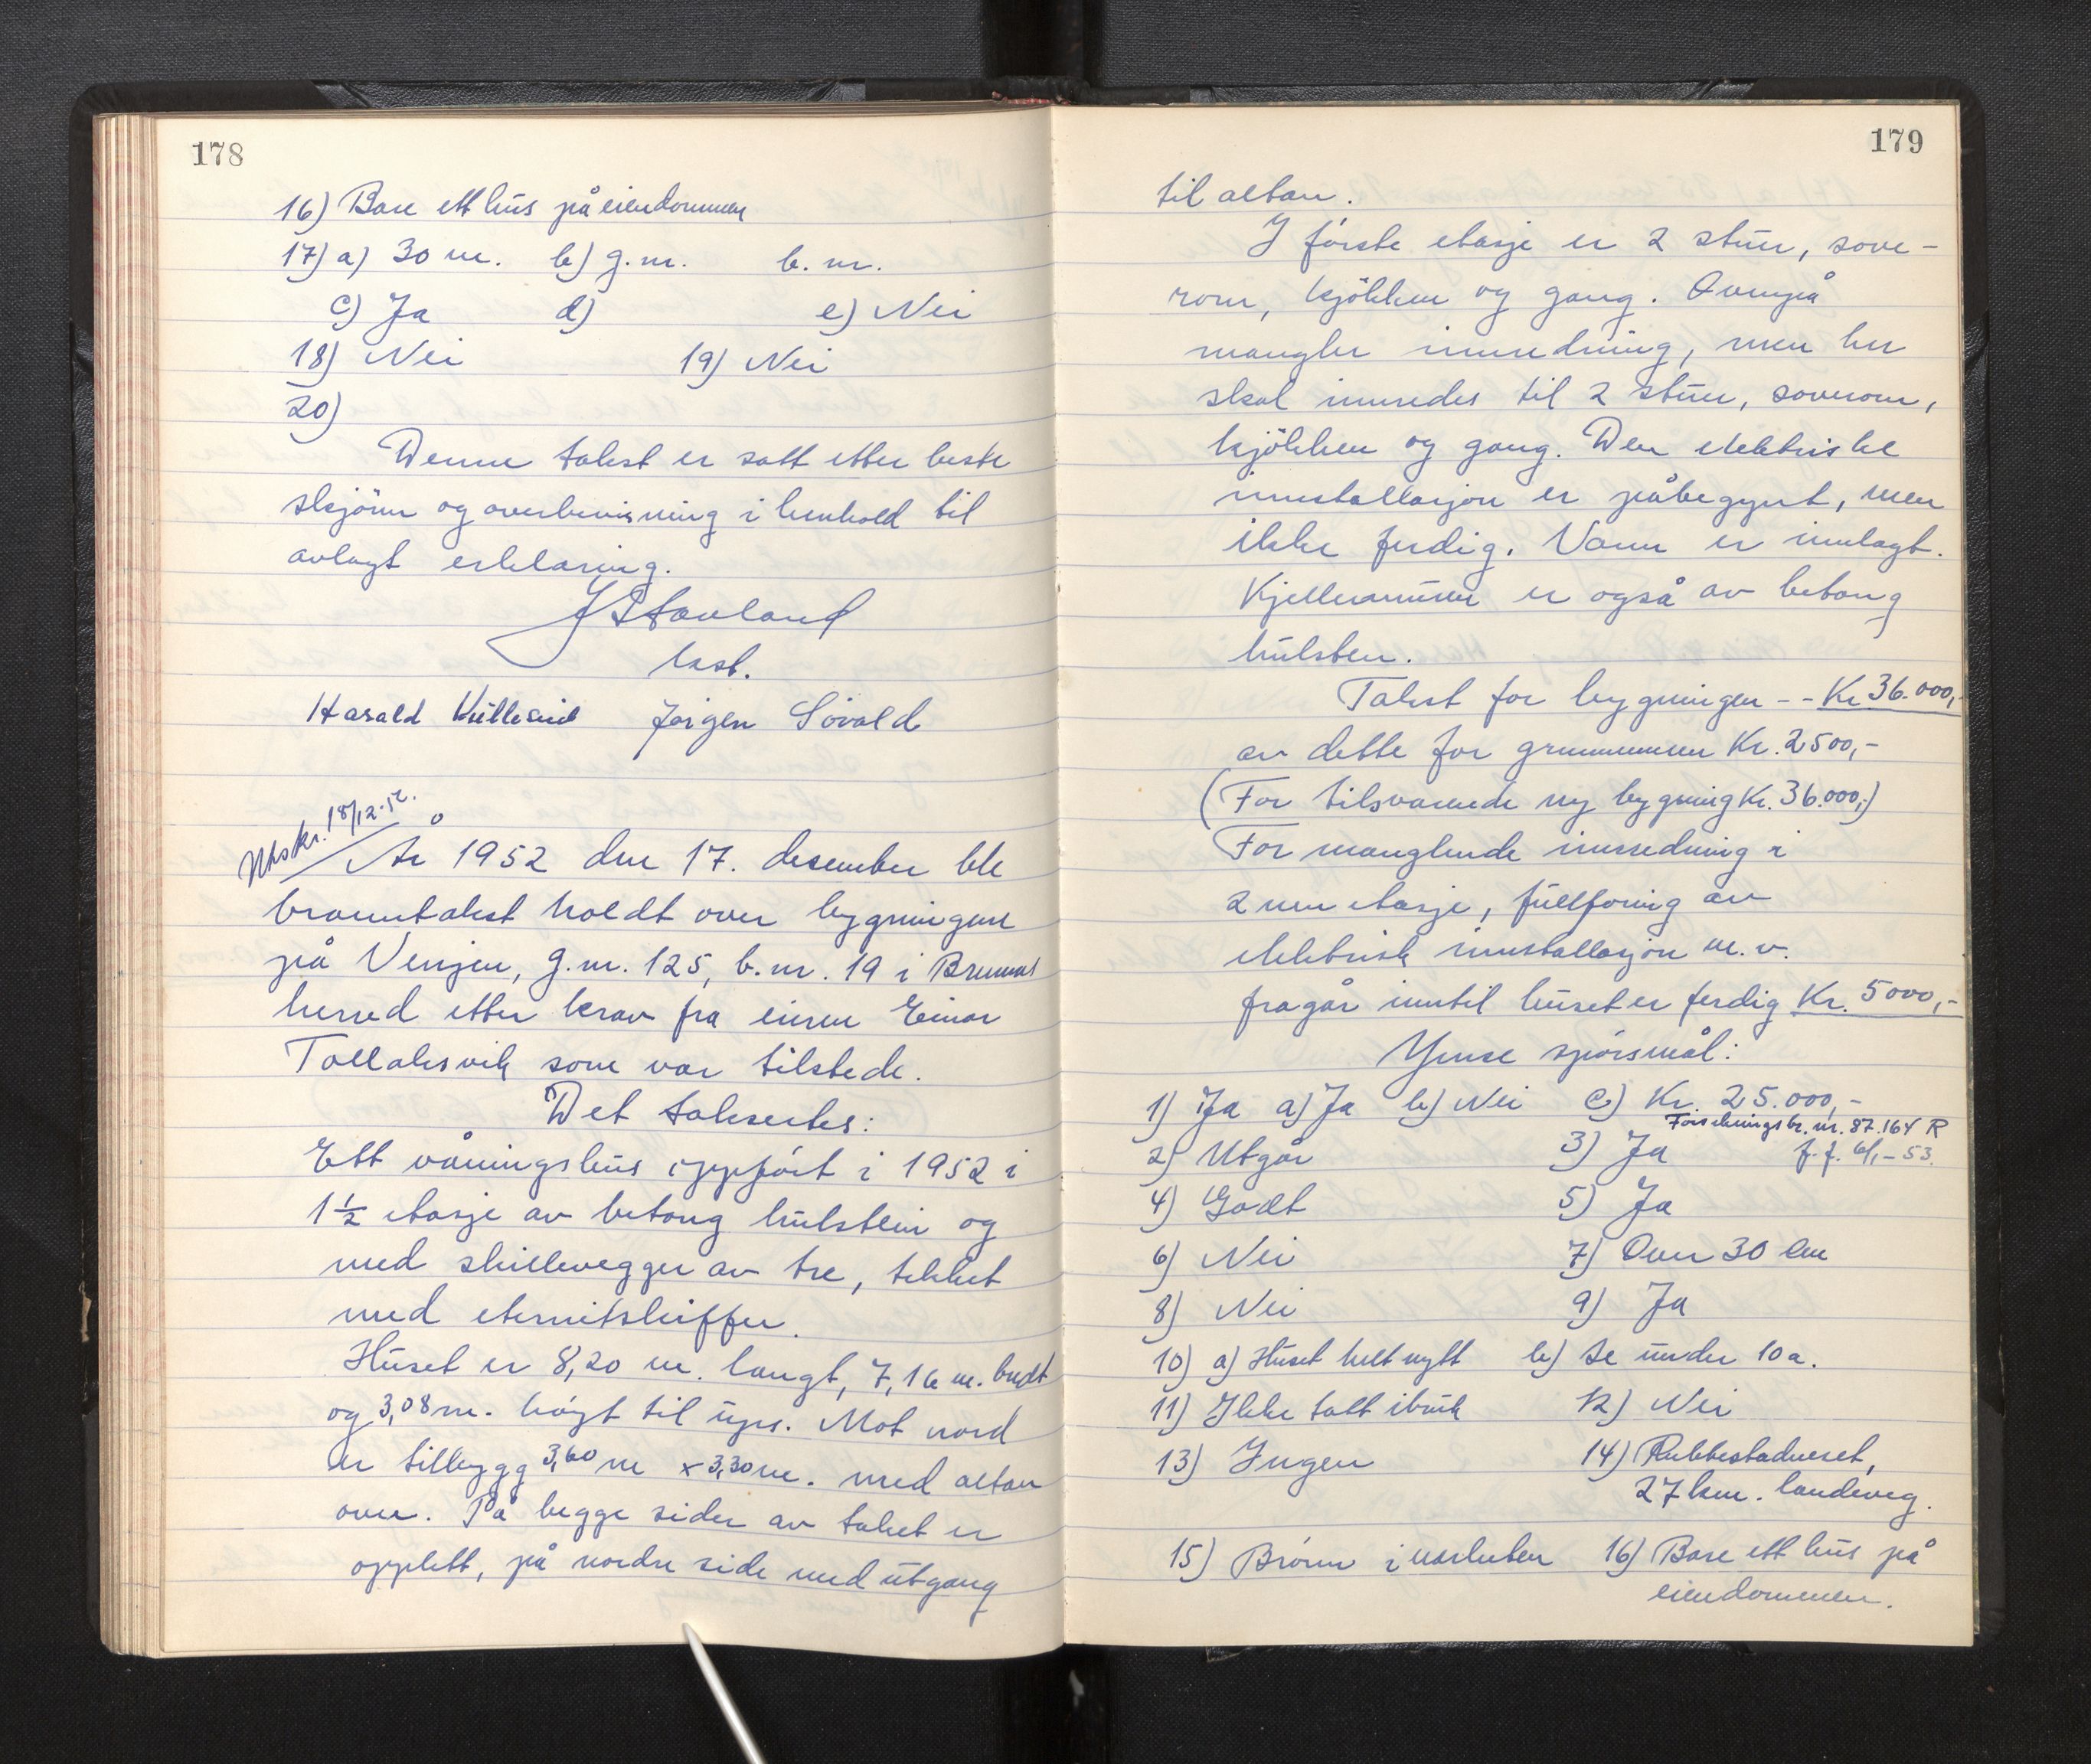 178
16) Bare ett hus på eiendommen
17) a) 30 m. b) g.nr. b.nr.
c) Ja d) e) Nei
18) Nei 19) Nei
20)
Denne takst er satt etter beste
skjönn og overbevisning i henhold til
avlagt erklaring.
J Stavland
lest.
Harald Jørgen Løvold
Utskr. 18/12-52.
År 1952 den 17. desember ble
branntakst holdt over bygningen
på Venjen, g.nr. 125, b.nr. 19 i Bremnes
herred etter krav fra eieren Einar
Tollaksvik som var tilstede.
Det takseres:
Ett våningshus oppført i 1952 i
1½ etasje av betong hulstein og
med skillevegger av tre, tekket
med eternitskiffer.
Huset er 8,20 m. langt, 7,16 m. bredt
og 3,08 m. høgt til ups. Mot nord
er tilbygg 3,60 m x 3,30 m. med altan
over. På begge sider av taket er
opplett, på nordre side med utgang
179
til altan.
I første etasje er 2 stuer, sove-
rom, kjökken og gang. Ovenpå
mangler innredning, men her
skal innredes til 2 stuer, soverom,
kjökken og gang. Den elektriske
innstallasjon er påbegynt, men
ikke ferdig. Vann er innlagt.
Kjellermuren er også av betong
hulsten.
Takst for bygningen - - Kr 36.000,-
av dette for grunnmuren Kr. 2500,-
(For tilsvarende ny bygning Kr. 36.000,-)
For manglende innredning i
2nen etasje, fullføring av
elektrisk innstallasjon m.v.
fragår inntil huset er ferdig Kr. 5000,-
Ymse spørsmål:
1) Ja a) Ja b) Nei c) Kr. 25.000,-
Forsikringsbr. nr. 87.164 R
2) Utgår 3) Ja f.f. 6/1-53.
4) Godt 5) Ja
6) Nei 7) Over 30 cm
8) Nei 9) Ja
10) a) Huset helt nytt b) Se under 10a.
11) Ikke tatt ibruk 12) Nei
13) Ingen 14) Rubbestadneset,
27 km. landeveg.
15) Brønn i narheten 16) Bare ett hus på
eiendommen.